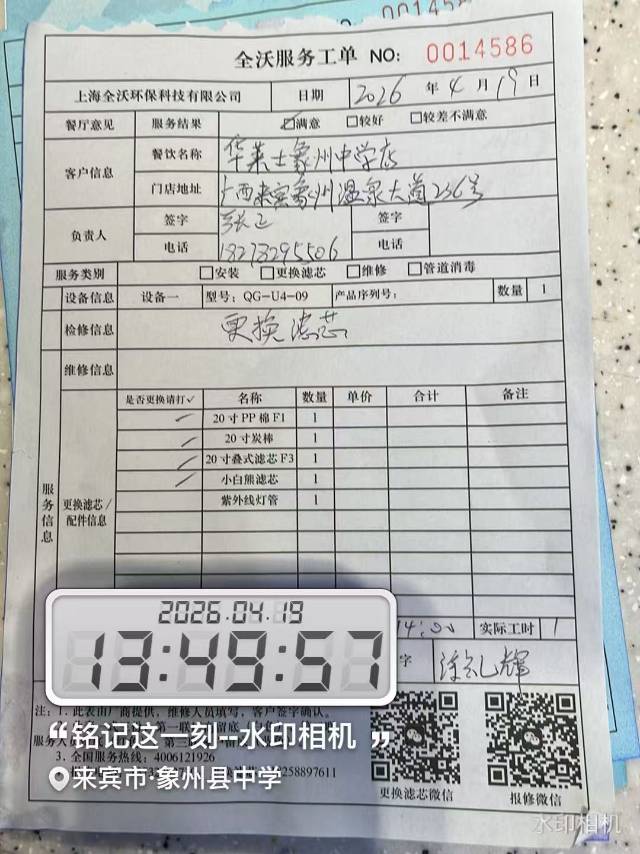 全沃服务工单 NO: 0014586
上海全沃环保科技有限公司 日期 2026 年 4 月 19 日
餐厅意见 服务结果 ☑满意 □较好 □较差不满意
客户信息 餐饮名称 华莱士象州中学店
门店地址 广西来宾象州温泉大道236号
负责人 签字 张正 签字
电话 18278295506 电话
服务类别 □安装 □更换滤芯 □维修 □管道消毒
设备信息 设备一 型号: QG-U4-09 产品序列号: 数量 1
检修信息 更换滤芯
维修信息
服务信息
更换滤芯/配件信息
是否更换请打✓ 名称 数量 单价 合计 备注
✓ 20寸PP棉F1 1
✓ 20寸炭棒 1
✓ 20寸叠式滤芯F3 1
✓ 小白熊滤芯 1
紫外线灯管 1
14:00 实际工时 1
字
2026.04.19
13:49:57
注: 1.此表由厂商提供，维修人员填写，客户签字确认。
“铭记这一刻--水印相机”
3.全国服务热线: 4006121926
来宾市·象州县中学
258897611
更换滤芯微信 报修微信
水印相机